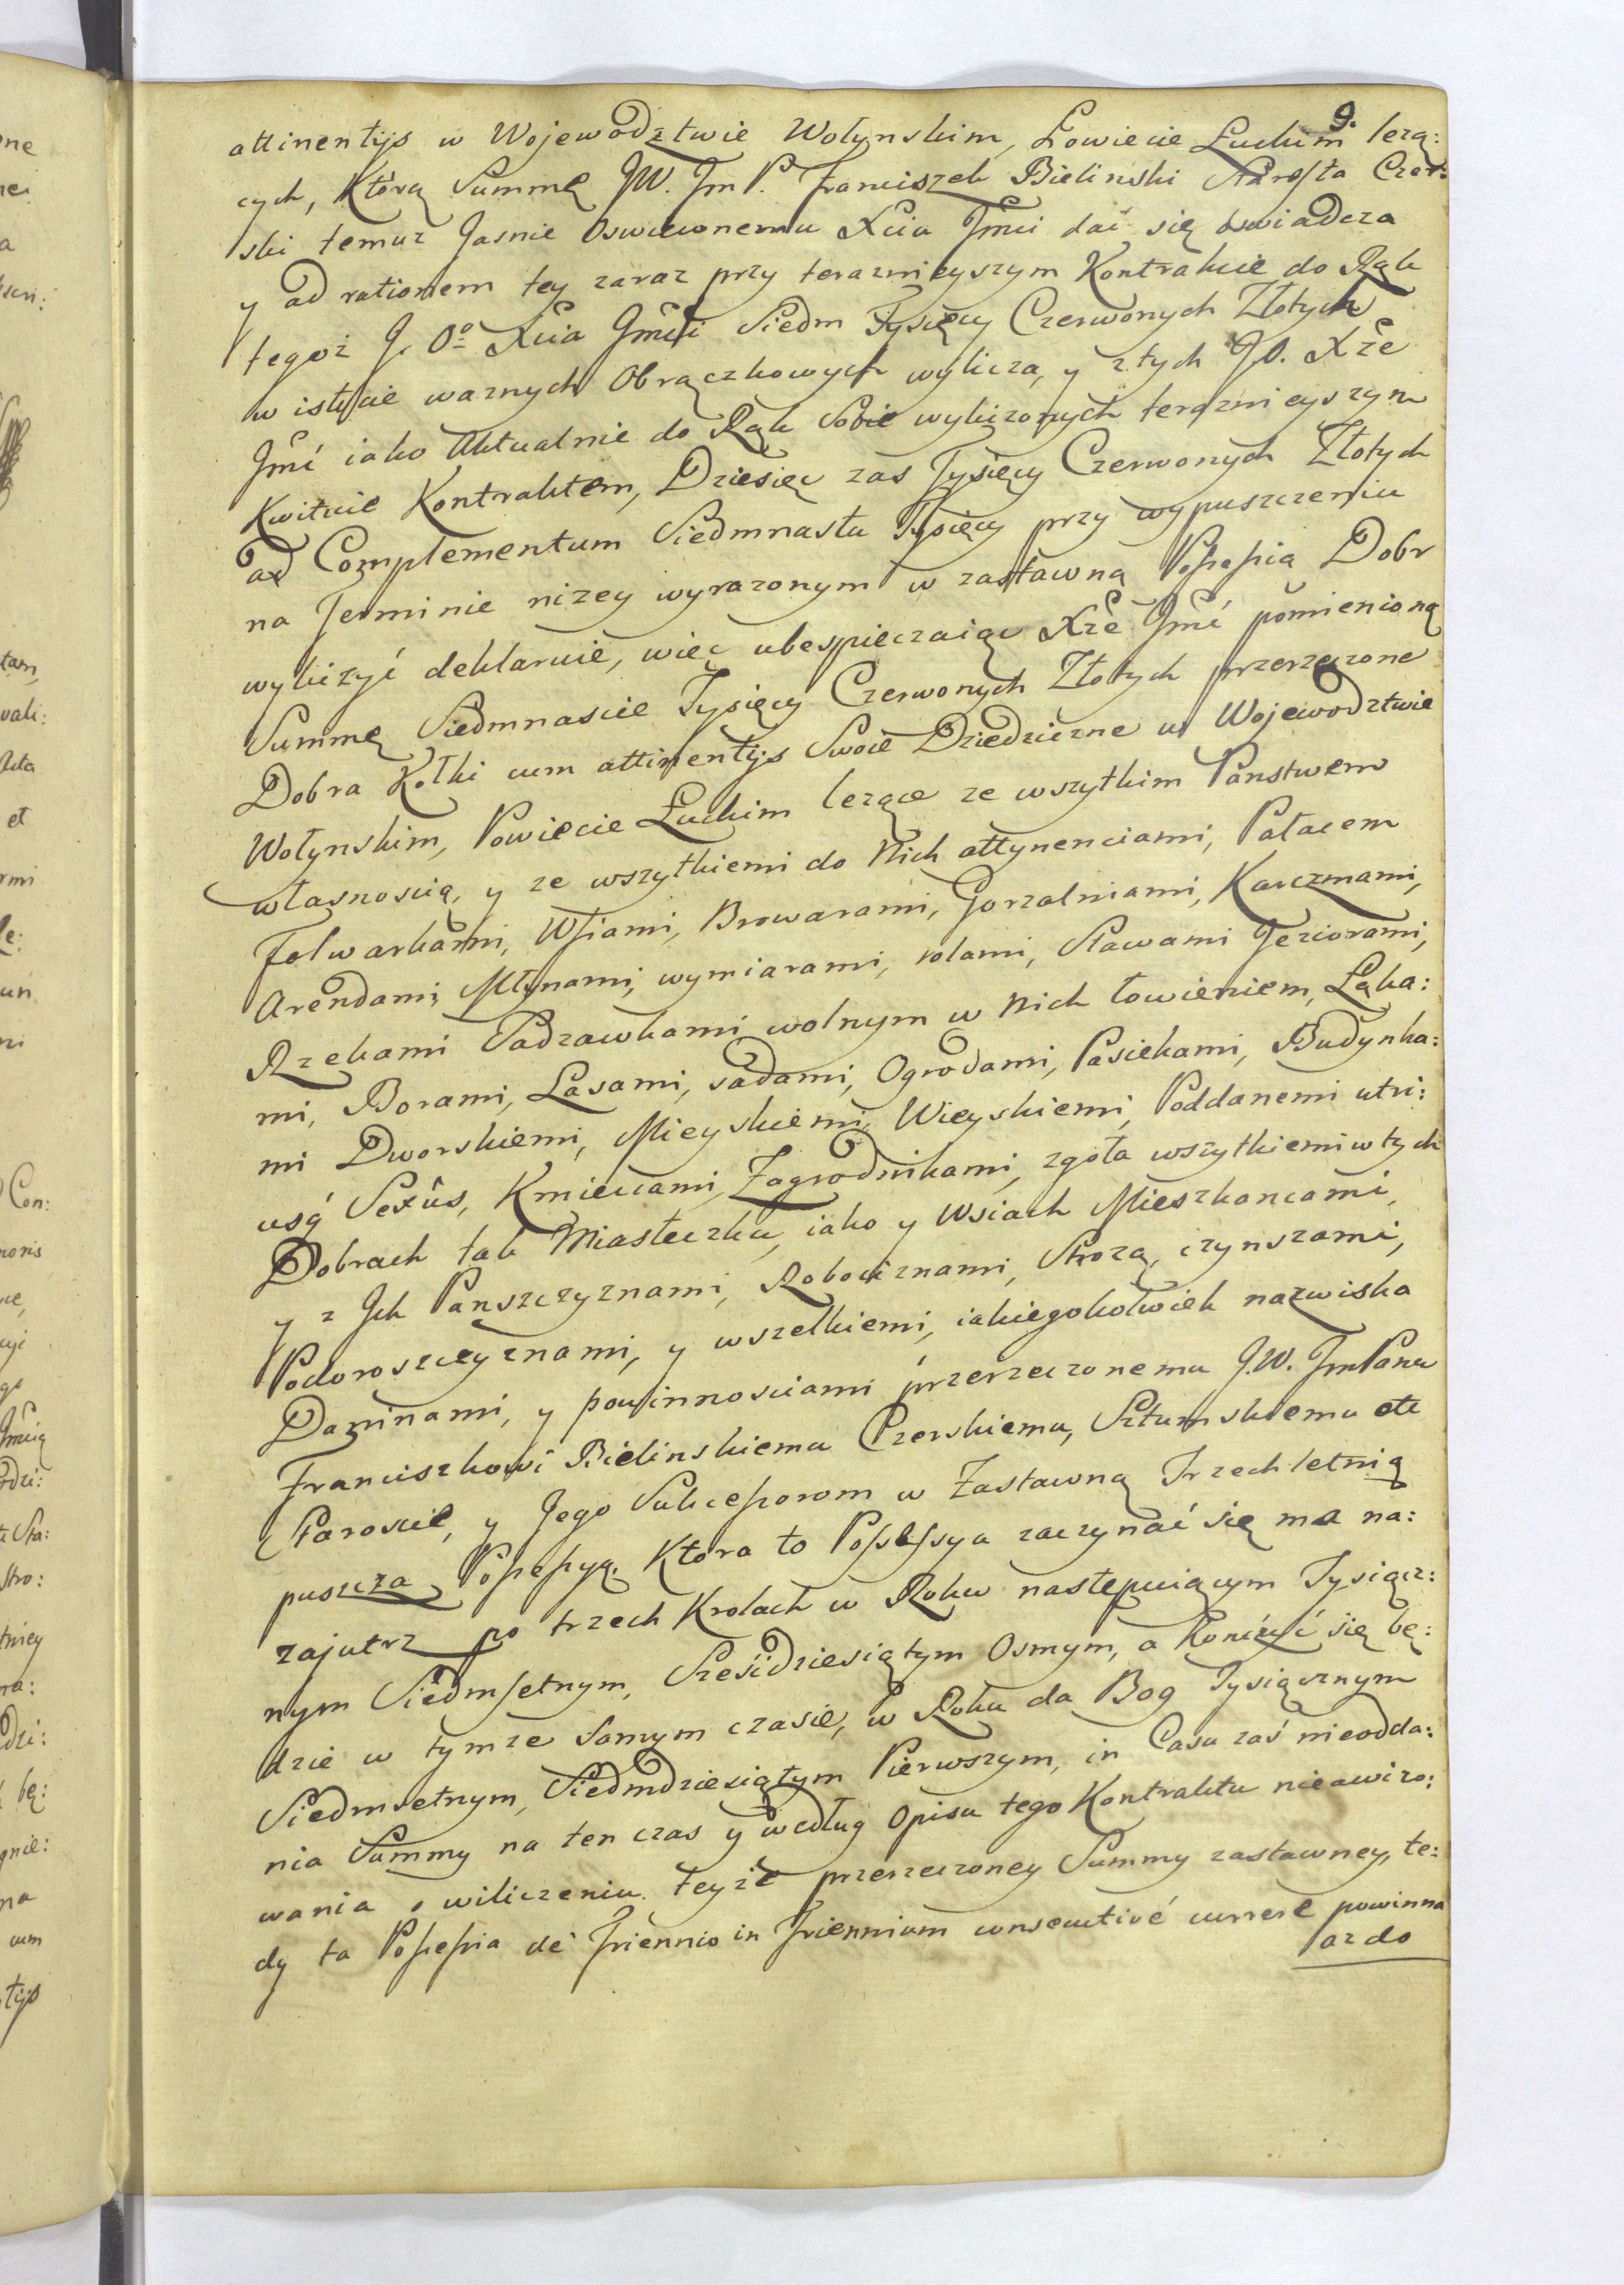 9.
attinentijs w Wojewodztwie Wołynskim, Powiecie Łuckim lezą:
cych, Ktorą Summę JW. Jm P. Franciszek Bielinski Starosta Czer:
ski temuz Jasnie Oswieconemu Xciu Jmci dać się oswiadcza
y ad rationem tey zaraz przy teraznieyszym Kontrakcie do Rąk
tegoż J. Oo Xcia Jmci Siedm Tysięcy Czerwonych Złotych
w istocie waznych Obrączkowych wylicza, y z tych JO. Xże
Jmć iako Aktualnie do Rąk Sobie wyliczonych teraznieyszym
Kwituie Kontraktem, Dziesięc zas Tysięcy Czerwonych Złotych
ad Complementum Siedmnastu Tysięcy przy wypuszczeniu
na Terminie nizey wyrazonym w zastawną Possessią Dobr
wyliczyć deklaruie, więc ubespieczaiąc Xże Jmć pomienioną
Summę Siedmnascie Tysięcy Czerwonych Złotych przerzeczone
Dobra Kołki cum attinentijs Swoie Dziedziczne w Wojewodztwie
Wołynskim, Powiecie Łuckim lezące ze wszytkim Panstwem
własnoscią, y ze wszytkiemi do Nich attynenciami, Pałacem
Folwarkami, Wsiami, Browarami, Gorzalniami, Karczmami,
Arendami, Młynami, wymiarami, rolami, Stawami Jeziorami,
Rzekami Sadzawkami wolnym w Nich łowieniem, Łąka:
mi, Borami, Lasami, sadami, Ogrodami, Pasiekami, Budynka:
mi Dworskiemi, Mieyskiemi, Wieyskiemi, Poddanemi utri:
usq́ Sexûs, Kmieciami, Zagrodnikami, zgoła wszytkiemi w tych
Dobrach tak Miasteczku, iako y Wsiach Mieszkancami,
y z Jch Panszczyznami, Robociznami, Strozą, czynszami,
Podoroszczyznami, y wszelkiemi, iakiegokolwiek nazwiska
Daninami, y powinnosciami przerzeczonemu J.W. JmPanu
Franciszkowi Bielinskiemu Czerskiemu, Sztumskiemu etc
Staroscie, y Jego Sukcessorom w Zastawną Trzechletnią
puszcza Possessyą. Ktora to Possessya zaczynać się ma na:
zajutrz po trzech Krolach w Roku nastempuiącym Tysiącz:
nym Siedmsetnym, Sześćdziesiątym Osmym, a Konczyć się bę:
dzie w tymze Samym czasie, w Roku da Bog Tysiącznym
Siedmsetnym, Siedmdziesiątym Pierwszym, in Casu zaś nieodda:
nia Summy na ten czas y według Opisu tego Kontraktu nieawizo:
wania o wiliczeniu teyże przerzeczoney Summy zastawney, te:
dy ta Possessia de Triennio in Triennium consecutivé currere powinna
az do